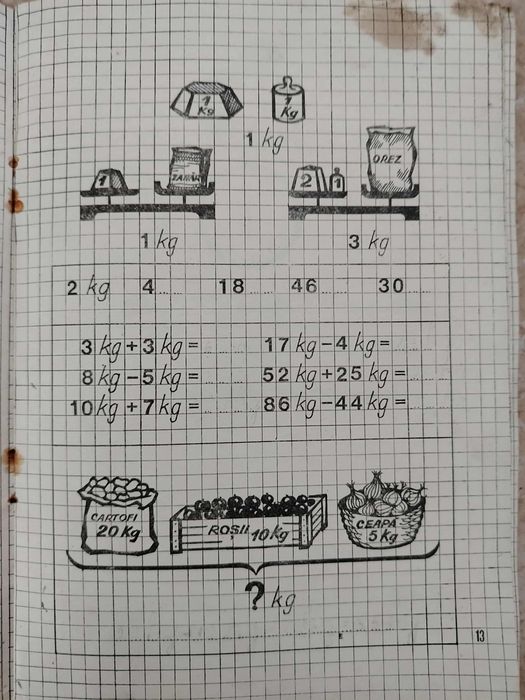 1 Kg 1 Kg
1 kg
1 ZAHĂR 2 1 OREZ
1 kg 3 kg
2 kg 4 ...... 18 ...... 46 ...... 30 ......
3 kg + 3 kg = ............ 17 kg – 4 kg = ............
8 kg – 5 kg = ............ 52 kg + 25 kg = ............
10 kg + 7 kg = ............ 86 kg – 44 kg = ............
CARTOFI ROȘII 10 Kg CEAPĂ
20 Kg 5 kg
? kg
13